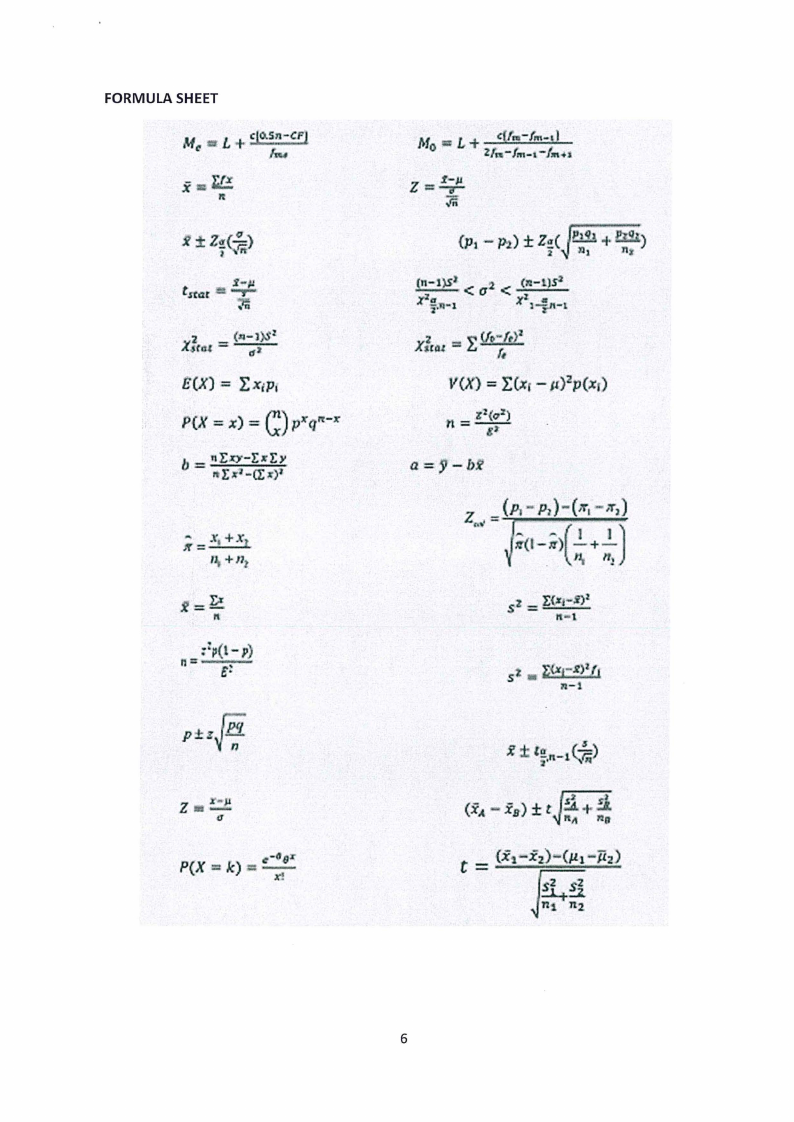 FORMULA SHEET
Mₑ = L + c[0.5n−CF] / fₘₑ    M₀ = L + c{fₘ−fₘ₋₁} / 2fₘ−fₘ₋₁−fₘ₊₁
x̄ = ∑fx / n    Z = x̄−μ / (σ/√n)
x̄ ± Z_{α/2}(σ/√n)    (p₁ − p₂) ± Z_{α/2}(√(p₁q₁/n₁ + p₂q₂/n₂))
t_{stat} = x̄−μ / (s/√n)    (n−1)S² / χ²_{α/2,n−1} < σ² < (n−1)S² / χ²_{1−α/2,n−1}
χ²_{stat} = (n−1)S² / σ²    χ²_{stat} = ∑ (f₀−fₑ)² / fₑ
E(X) = ∑ xᵢpᵢ    V(X) = ∑(xᵢ − μ)²p(xᵢ)
P(X = x) = (n x) pˣqⁿ⁻ˣ    n = Z²(σ²) / E²
b = n∑xy−∑x∑y / n∑x²−(∑x)²    a = ȳ − bx̄
π̂ = x₁ + x₂ / n₁ + n₂    Z_{cal} = (p₁ − p₂)−(π₁ − π₂) / √(π̂(1−π̂)(1/n₁ + 1/n₂))
x̄ = ∑x / n    s² = ∑(xᵢ−x̄)² / n−1
n = z²p(1−p) / E²    s² = ∑(xᵢ−x̄)²fᵢ / n−1
p ± z√(pq/n)    x̄ ± t_{α/2,n−1}(s/√n)
Z = x−μ / σ    (x̄_A − x̄_B) ± t√(s²_A/n_A + s²_B/n_B)
P(X = k) = e^{−θ}θˣ / x!    t = (x̄₁−x̄₂)−(μ₁−μ̄₂) / √(s₁²/n₁ + s₂²/n₂)
6